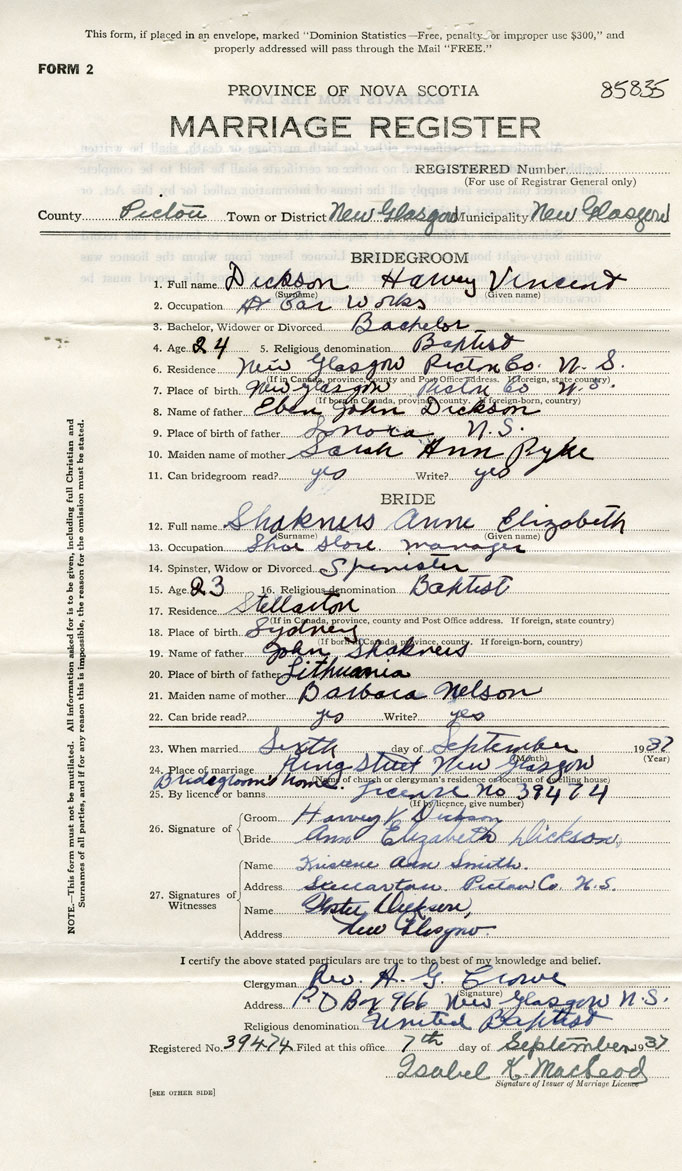 This form, if placed in an envelope, marked "Dominion Statistics—Free, penalty or improper use $300," and
properly addressed will pass through the Mail "FREE."
FORM 2
PROVINCE OF NOVA SCOTIA
85835
MARRIAGE REGISTER
REGISTERED Number
(For use of Registrar General only)
County Pictou Town or District New Glasgow Municipality New Glasgow
BRIDEGROOM
1. Full name Dickson Harvey Vincent
(Surname) (Given name)
2. Occupation At Car Works
3. Bachelor, Widower or Divorced Bachelor
4. Age 24 5. Religious denomination Baptist
6. Residence New Glasgow Pictou Co. N.S.
(If in Canada, province, county and Post Office address. If foreign, state country)
7. Place of birth New Glasgow Pictou Co N.S.
(If born in Canada, province, county. If foreign-born, country)
8. Name of father Eben John Dickson
9. Place of birth of father Sonora N.S.
10. Maiden name of mother Sarah Ann Pyke
11. Can bridegroom read? yes Write? yes
BRIDE
12. Full name Shakners Anne Elizabeth
(Surname) (Given name)
13. Occupation Shoe Store manager
14. Spinster, Widow or Divorced Spinister
15. Age 23 16. Religious denomination Baptist
17. Residence Stellarton
(If in Canada, province, county and Post Office address. If foreign, state country)
18. Place of birth Sydney
(If born in Canada, province, county. If foreign-born, country)
19. Name of father John Shakners
20. Place of birth of father Lithuania
21. Maiden name of mother Barbara Nelson
22. Can bride read? yes Write? yes
23. When married Sixth day of September 1937
(Month) (Year)
24. Place of marriage King Street New Glasgow
(Name of church or clergyman's residence or location of dwelling house)
Bridegroom's home.
25. By licence or banns License No 39474
(If by licence, give number)
26. Signature of
Groom Harvey V. Dickson
Bride Ann Elizabeth Dickson
27. Signatures of Witnesses
Name Kristene Ann Smith.
Address Stellarton Pictou Co. N.S.
Name Dickson,
Address New Glasgow.
I certify the above stated particulars are true to the best of my knowledge and belief.
Clergyman Rev. A. G. Crowe
(Signature)
Address P.O Box 966 New Glasgow N.S.
Religious denomination United Baptist
Registered No. 39474 Filed at this office 7th day of September 1937
Isabel K. MacLeod
Signature of Issuer of Marriage Licence
[SEE OTHER SIDE]
NOTE.—This form must not be mutilated. All information asked for is to be given, including full Christian and
Surnames of all parties, and if for any reason this is impossible, the reason for the omission must be stated.